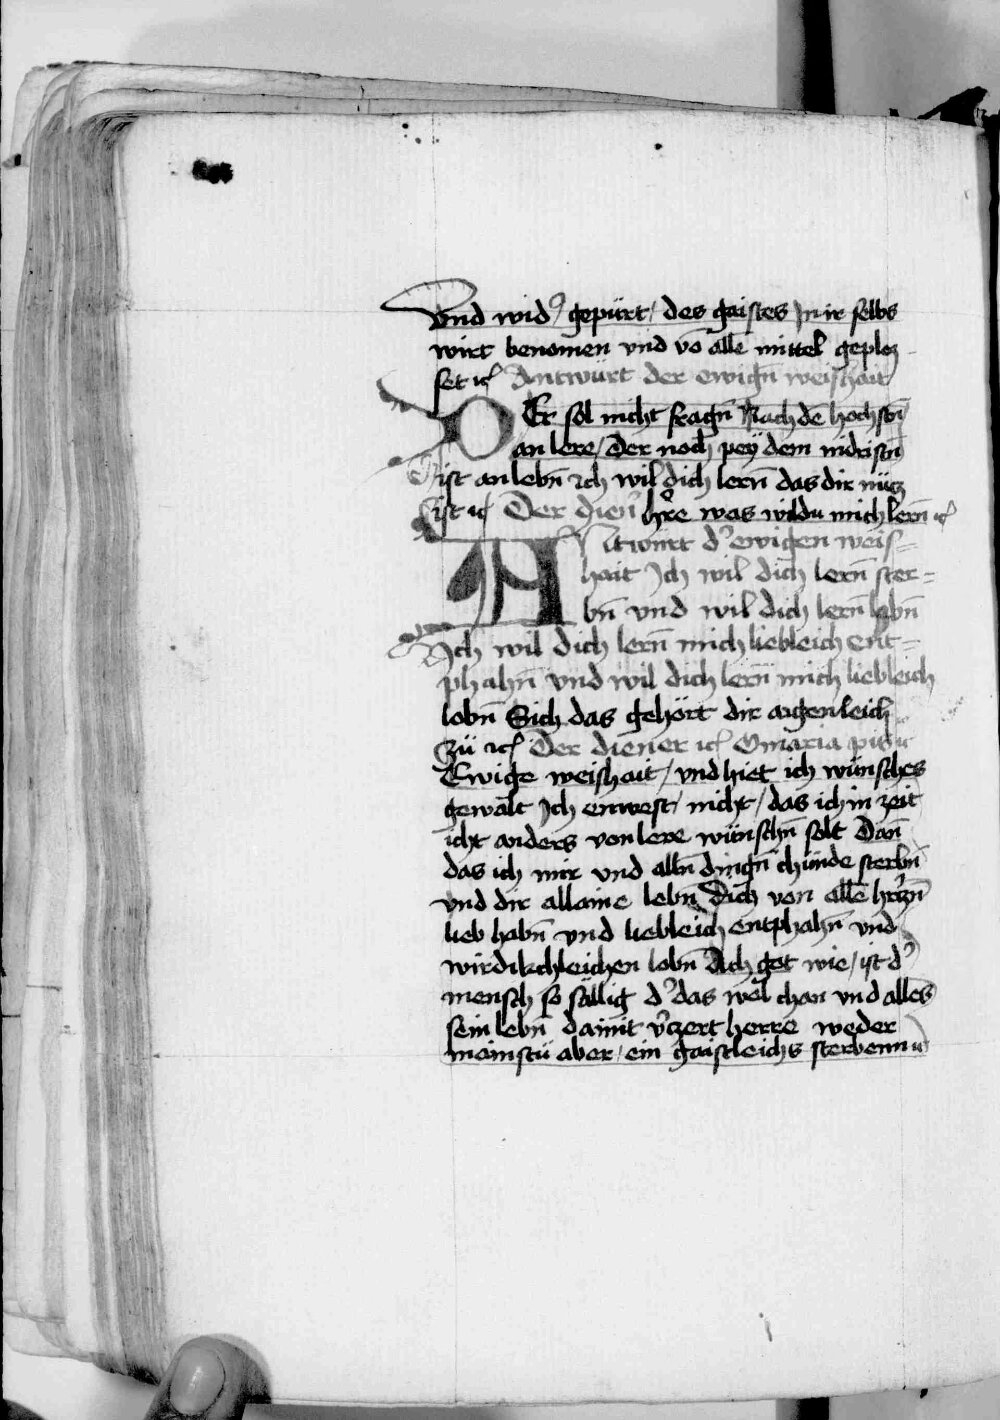 Vnd wid᾽ gepürt / des gaistes Jn ir selbs
wirt benomen vnd vō allē mittel geploz
set ꝛc Antwürt der ewigñ weishait
DEr sol nicht fragñ Nach dē hochstñ
an lere / Der noch pey dem nidristñ
ist an lebñ Ich wil dich lerñ das dir nücz
ist ꝛc Der dien᾽ h᾽re was wildu mich lerñ ꝛc
ANtwürt d᾽ ewigen weis=
hait Jch wil dich lerñ ster=
bñ vnd wil dich lerñ lebñ
Jch wil dich lerñ mich liebleich ent=
phahñ vnd wil dich lerñ mich liebleich
lobñ Sich das gehört dir aigenleich
zü ꝛc Der diener ꝛc O maria pis ꝛc
Ewige weishait / vnd hiet ich wünsches
gewalt Jch enwest / nicht / das ich in zeit
icht anders von lere wünschñ solt Dañ
das ich mir vnd allñ dingñ chünde sterbñ
vnd dir allaine lebñ Dich von allē h᾽czñ
lieb habñ vnd liebleich entphahñ vnd
wirdikchleichen lobñ Ach got wie / ist d᾽
mensch so sällig d᾽ das wol chan vnd alles
sein lebñ damit v᾽czert herre weder
mainstu aber / ein gaistleichs sterbenn ꝛc